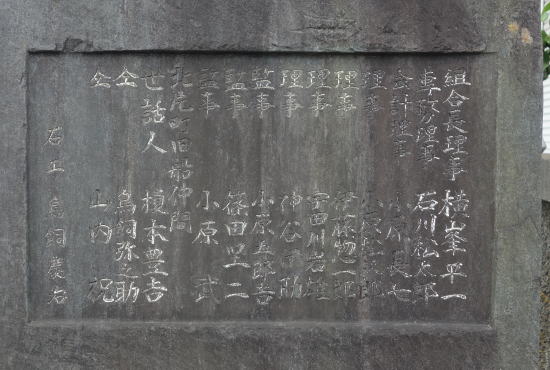 組合長理事 横山峯平一
専務理事 石川松太郎
会計理事 小原長七
理事 小原
理事 伊藤惣一郎
理事 宇田川岩雄
理事 神谷 助
監事 小原五郎吉
監事 篠田四二
監事 小原 武
北尾町旧船仲間
世話人 榎本豊吉
仝 鳥銅弥之助
仝 山内 祝
石工 鳥銅慶右